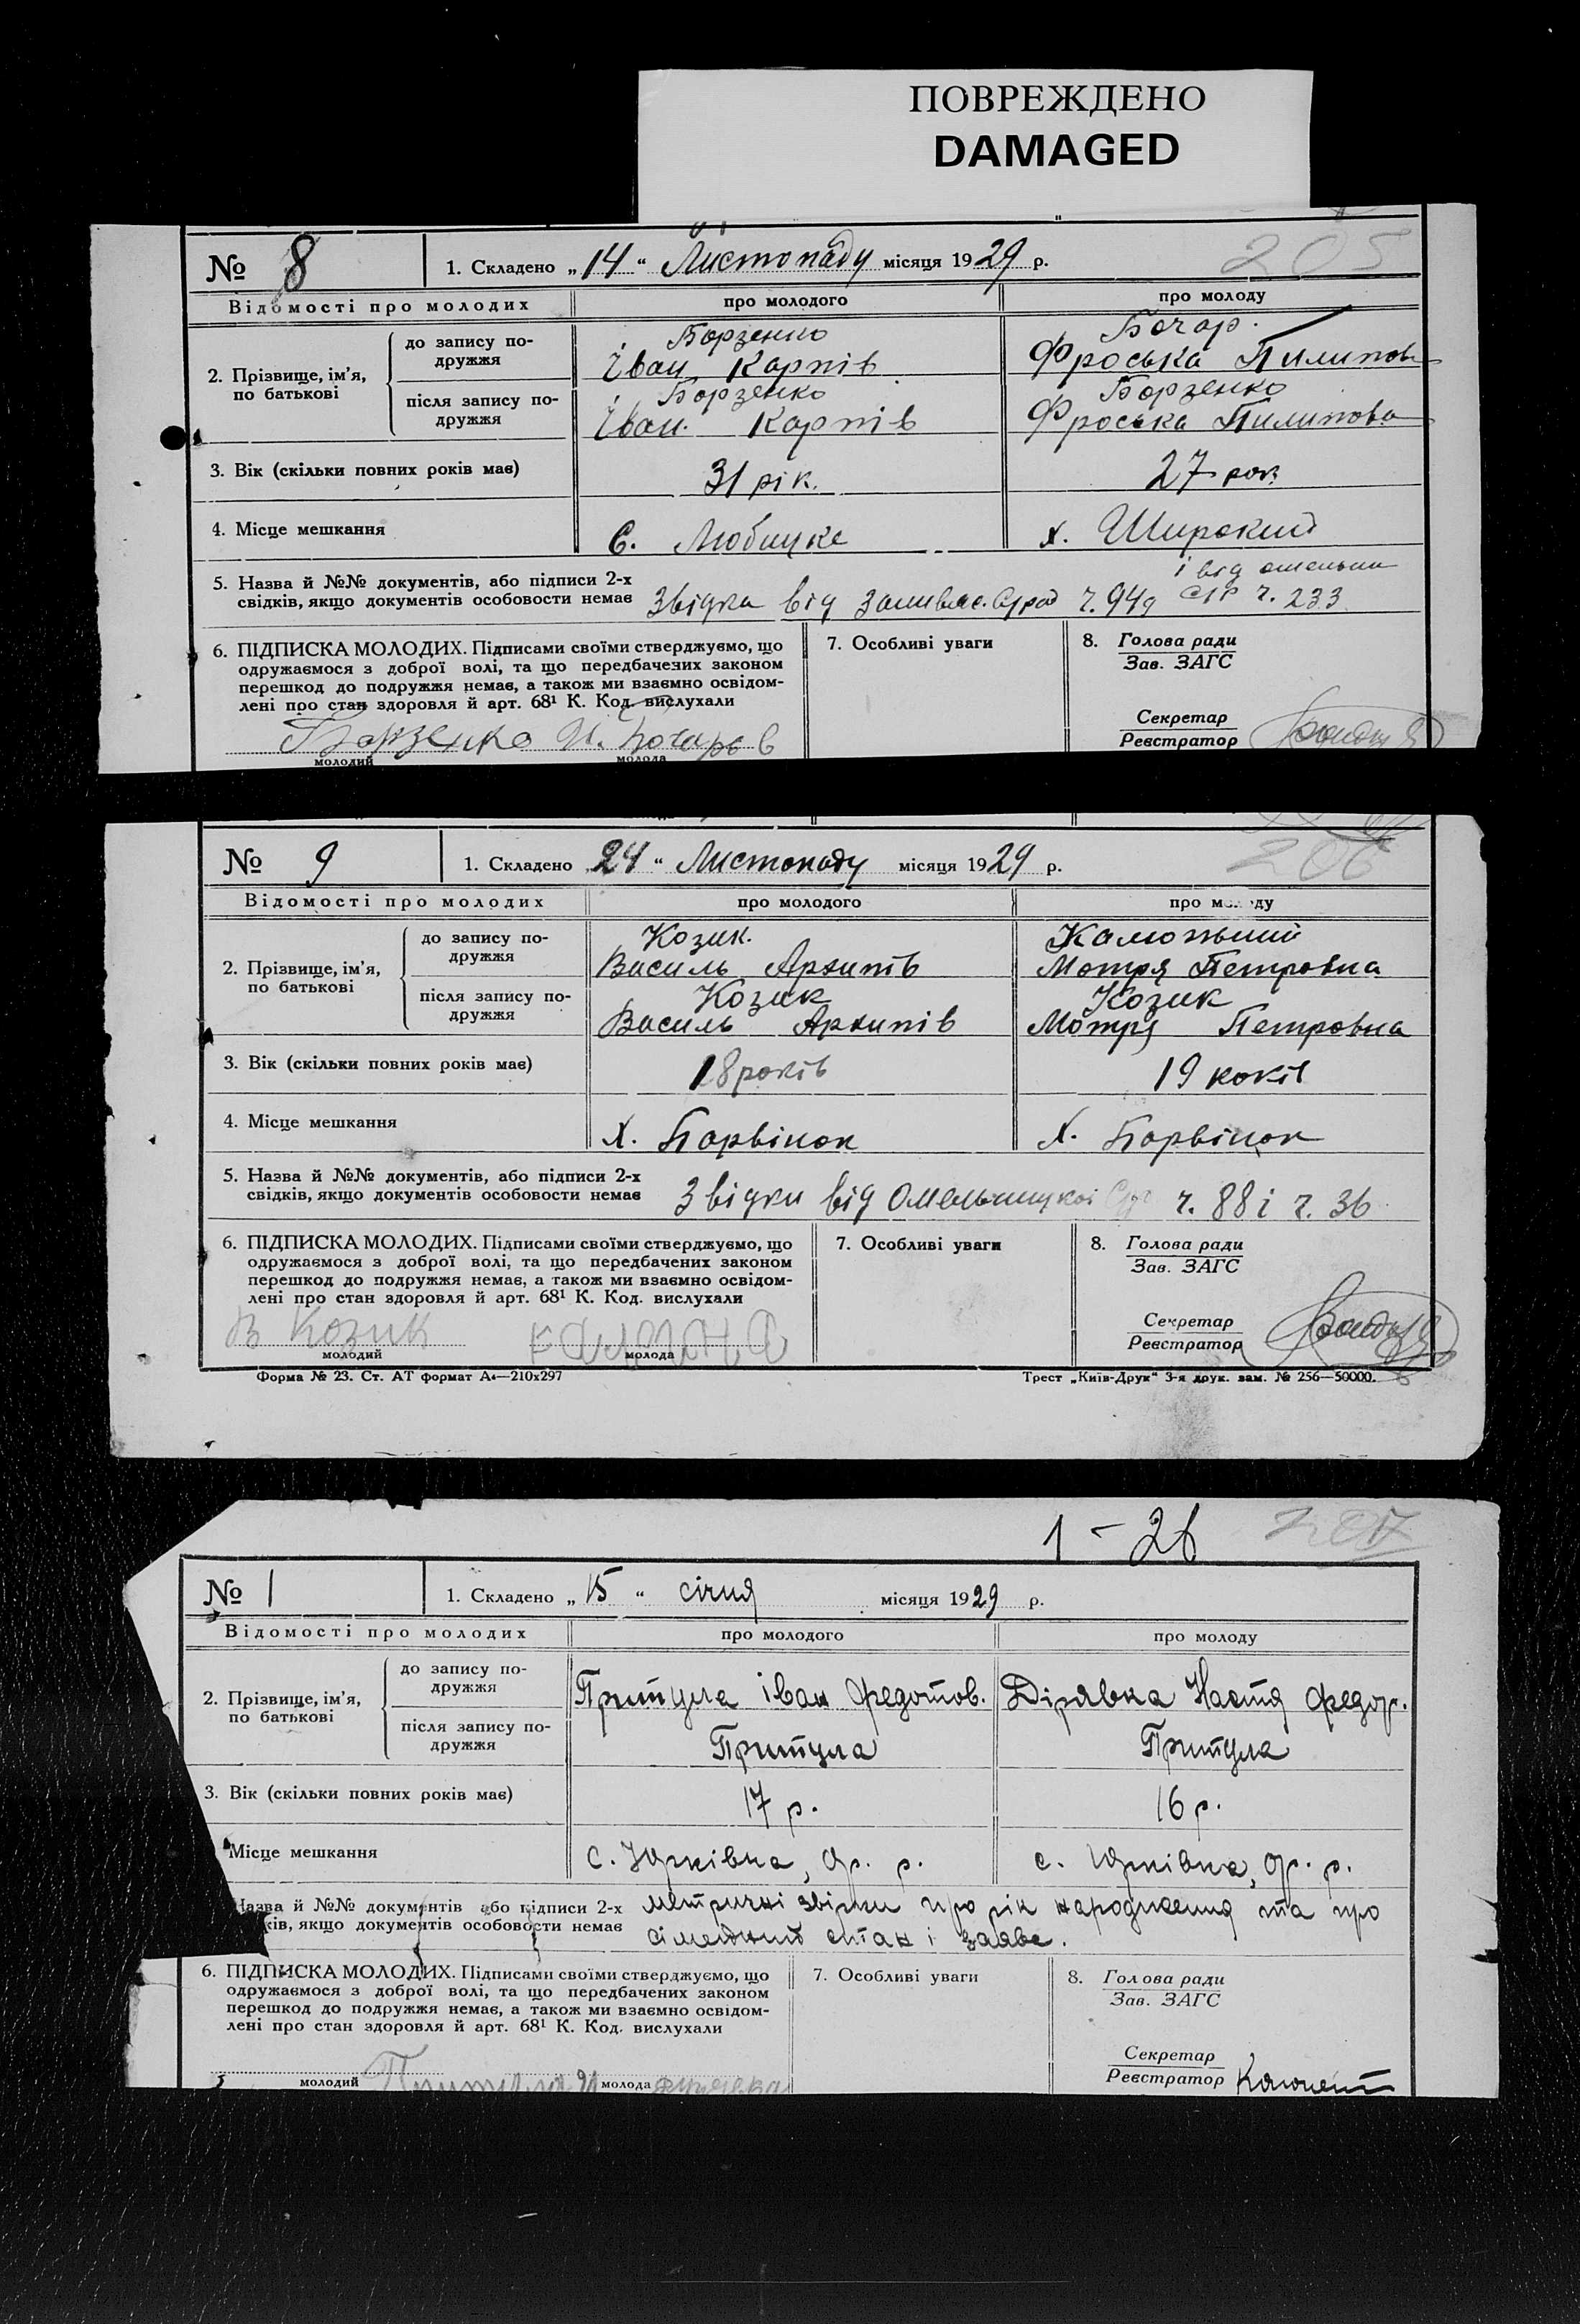 ПОВРЕЖДЕНО
DAMAGED
№ 8 1. Складено „ 14 “ Листопаду місяця 1929 р. 205
Відомості про молодих про молодого про молоду
2. Прізвище, ім’я, по батькові
до запису по-
дружжя
Борзенко
Іван Карпів
Бочар.
Фроська Пилипов
після запису по-
дружжя
Борзенко
Іван Карпів
Борзенко
Фроська Пилипова
3. Вік (скільки повних років має) 31 рік. 27 рок.
4. Місце мешкання С. Любицке х. Широкий
5. Назва й №№ документів, або підписи 2-х
свідків, якщо документів особовости немає
Звідка від ч. 949 і від ч. 233
6. ПІДПИСКА МОЛОДИХ. Підписами своїми стверджуємо, що
одружаємося з доброї волі, та що передбачених законом
перешкод до подружжя немає, а також ми взаємно освідом-
лені про стан здоров'я й арт. 68¹ К. Код. вислухали
Борзенко И.
молодий молода
7. Особливі уваги
8. Голова ради
Зав. ЗАГС
Секретар
Реєстратор
№ 9 1. Складено 24 “ Листопаду місяця 1929 р. 206
Відомості про молодих про молодого про мо ду
2. Прізвище, ім’я, по батькові
до запису по-
дружжя
Козик.
Василь Архипів
Мотря Петровна
після запису по-
дружжя
Козик
Василь Архипів
Козик
Мотря Петровна
3. Вік (скільки повних років має) 18 років 19 років
4. Місце мешкання Х. Барвінок Х. Барвінок
5. Назва й №№ документів, або підписи 2-х
свідків, якщо документів особовости немає
Звідки від Омельницкої ч. 88 і ч. 36
6. ПІДПИСКА МОЛОДИХ. Підписами своїми стверджуємо, що
одружаємося з доброї волі, та що передбачених законом
перешкод до подружжя немає, а також ми взаємно освідом-
лені про стан здоровля й арт. 68¹ К. Код. вислухали
В Козик
молодий молода
7. Особливі уваги
8. Голова ради
Зав. ЗАГС
Секретар
Реєстратор
Форма № 23. Ст. АТ формат А₄—210х297 Трест „Київ-Друк“ 3-я друк. зам. № 256—50000.
1 - 26 207
№ 1 1. Складено „ 15 “ січня місяця 1929 р.
Відомості про молодих про молодого про молоду
2. Прізвище, ім’я, по батькові
до запису по-
дружжя
Притула Іван Федотов. Дірявка Настя Федор.
після запису по-
дружжя
Притула Притула
3. Вік (скільки повних років має) 17 р. 16 р.
Місце мешкання с. Юрківка, Ор. р. с. Юрківка, Ор. р.
Назва й №№ документів або підписи 2-х
ків, якщо документів особовости немає
метричні звірки про рік народження та про
сімейний стан і заява.
6. ПІДПИСКА МОЛОДИХ. Підписами своїми стверджуємо, що
одружаємося з доброї волі, та що передбачених законом
перешкод до подружжя немає, а також ми взаємно освідом-
лені про стан здоровля й арт. 68¹ К. Код. вислухали
молодий Притула И молода
7. Особливі уваги
8. Голова ради
Зав. ЗАГС
Секретар
Реєстратор